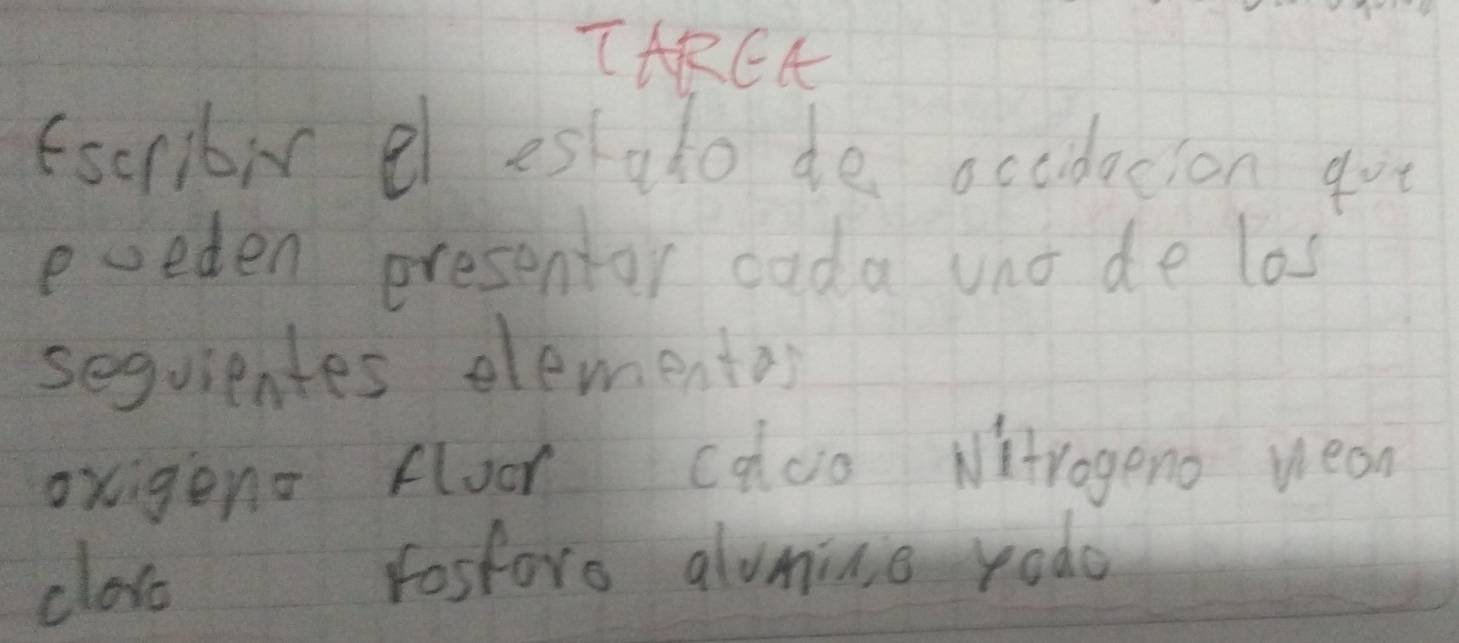 TAREA
Escribir el estado de occidacion que
pueden presentar cada uno de los
seguientes elementos
oxigeno fluor Calcio Nitrogeno neon
cloro fosforo aluminio yodo